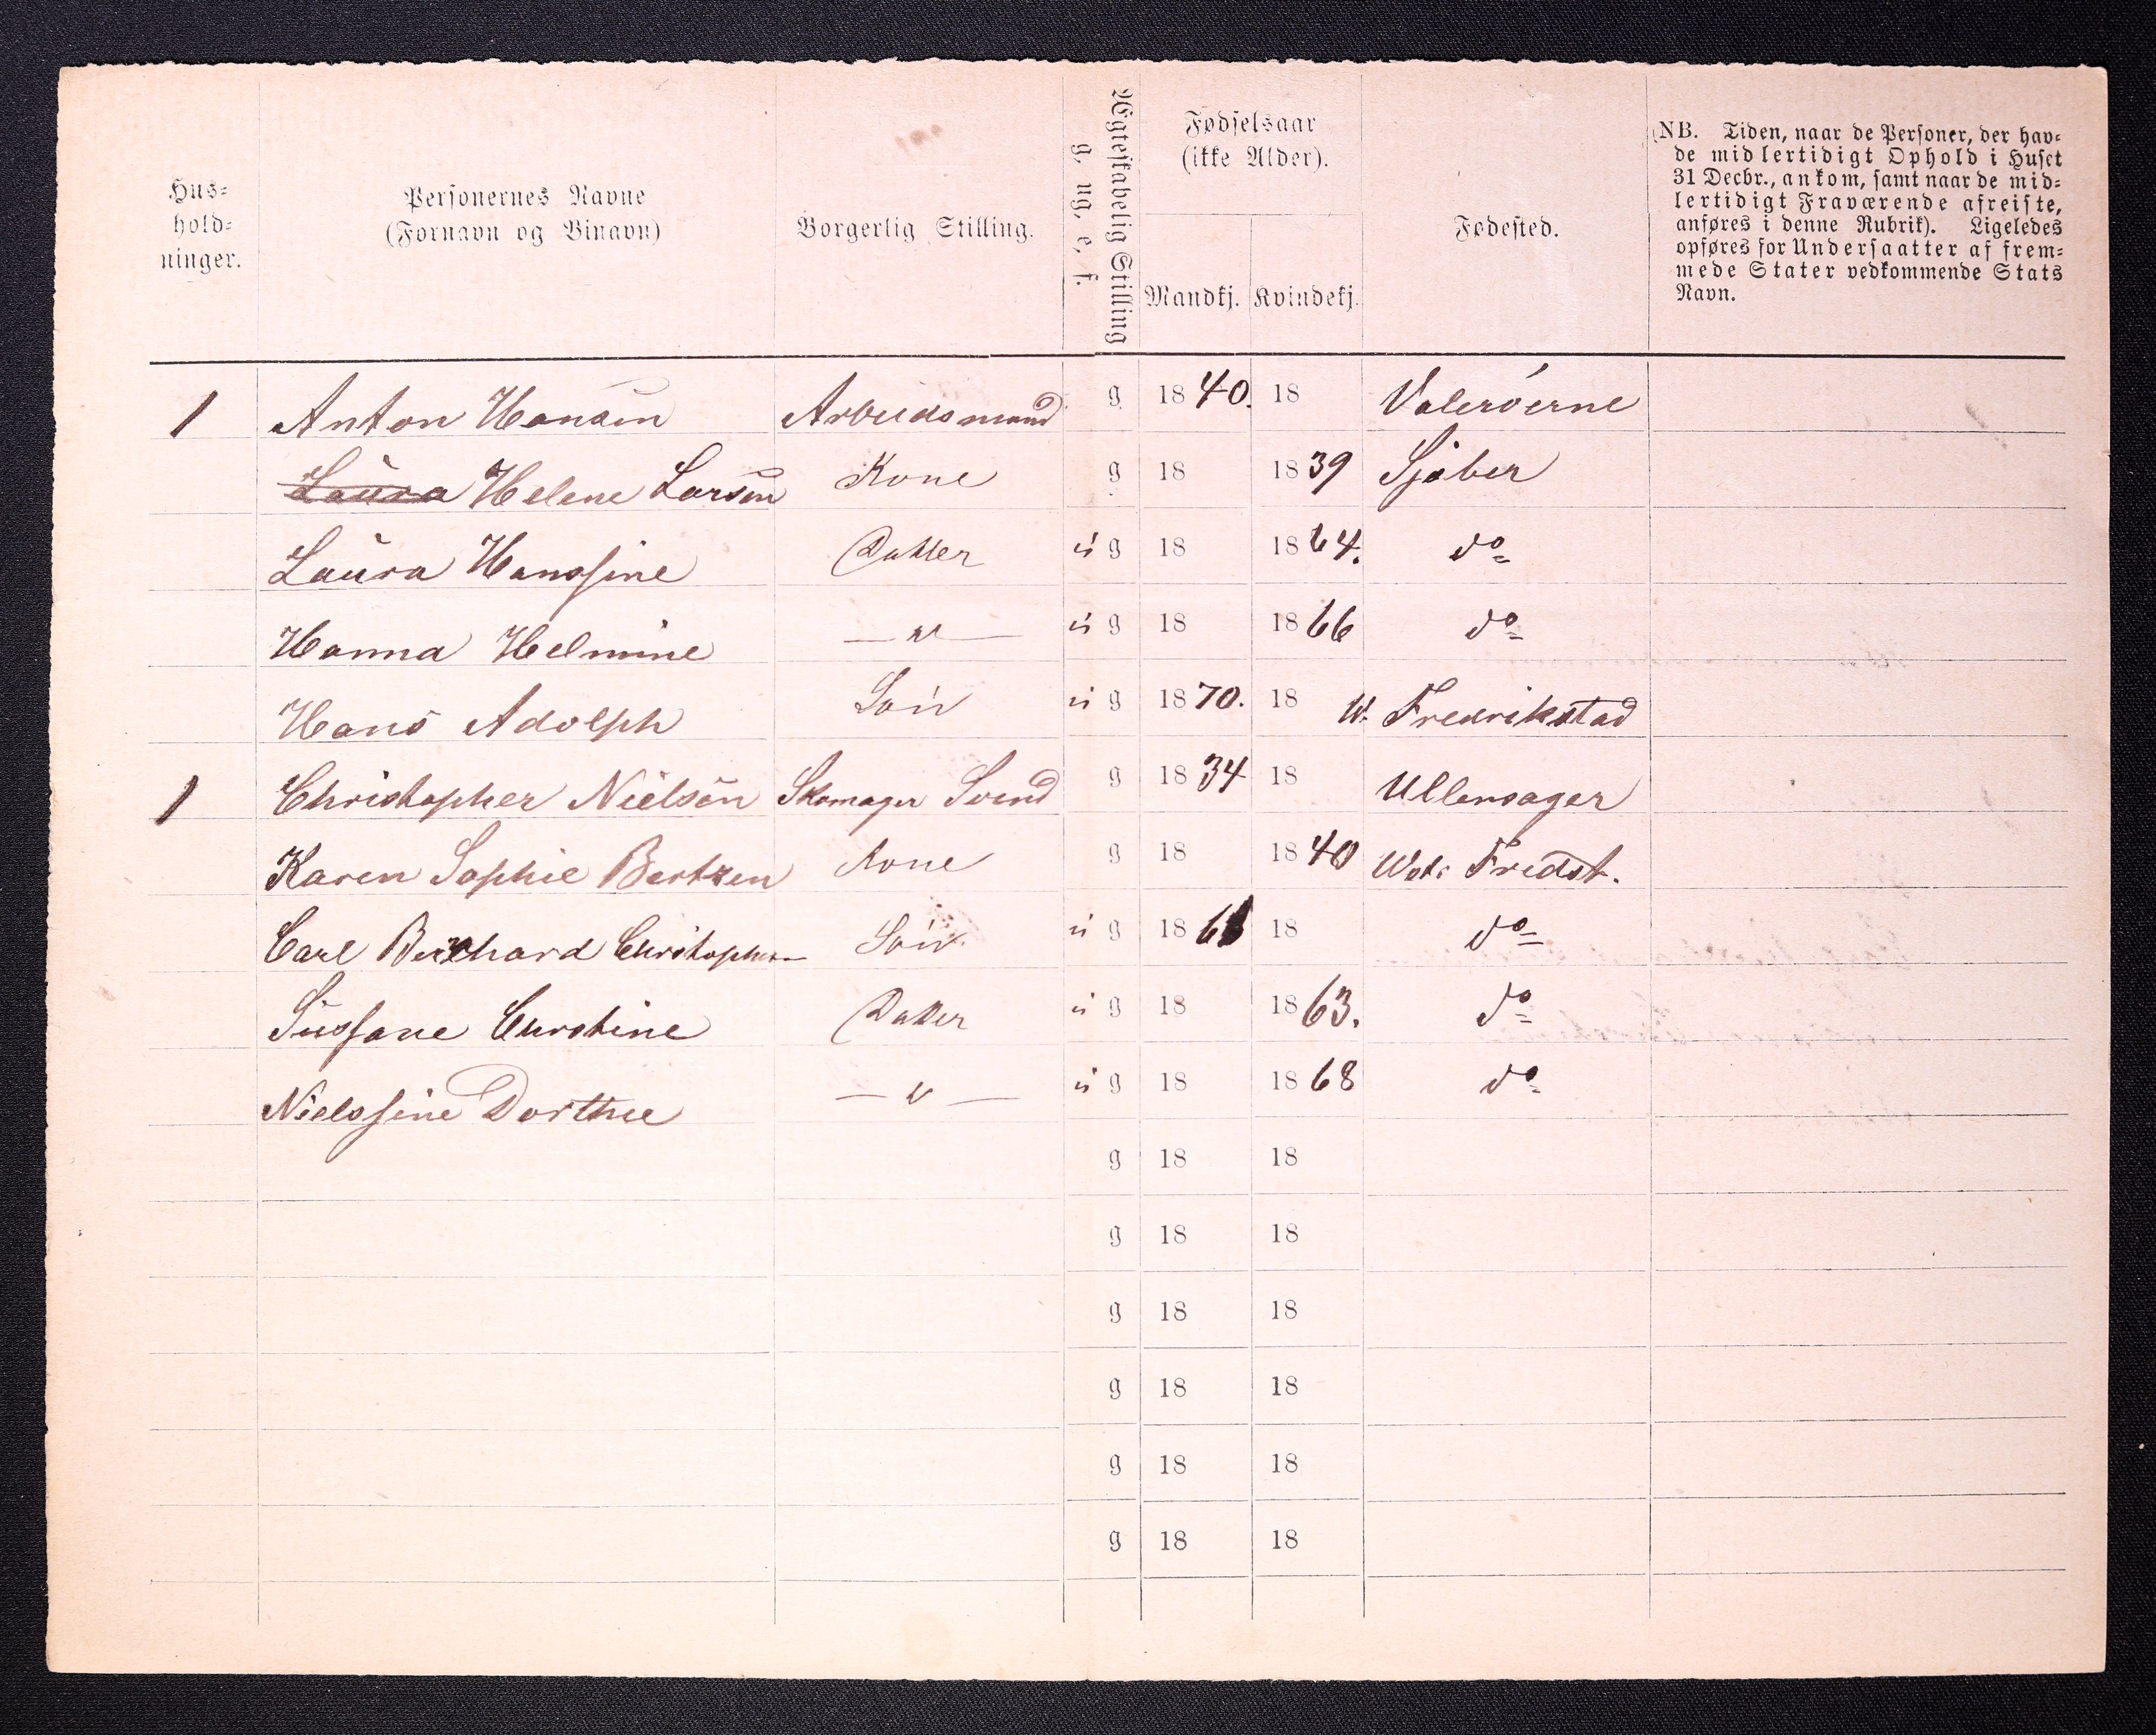 Hus-
hold-
ninger.
Personernes Navne
(Fornavn og Binavn)
Borgerlig Stilling.
Ægteskabelig Stilling
g, ug, e, f.
Fødselsaar
(ikke Alder).
Mandkj. Kvindekj.
Fødested.
(NB. Tiden, naar de Personer, der hav-
de midlertidigt Ophold i Huset
31 Decbr., ankom, samt naar de mid-
lertidigt Fraværende afreiste,
anføres i denne Rubrik). Ligeledes
opføres for Undersaatter af frem-
mede Stater vedkommende Stats
Navn.
1 Anton Hansen Arbeidsmand g 1840. 18 Valerøerne
Laura Helene Larsen Kone g 18 1839 Sjøber
Laura Hanssine Datter u g 18 1864. do
Hanna Helmine —"— u g 18 1866 do
Hans Adolph Søn u g 1870. 18 W. Fredrikstad
1 Christopher Nielsen Skomager Svend g 1834 18 Ullensager
Karen Sophie Bertzen Kone g 18 1840 Wst. Fredst.
Carl Bernhard Christophersen Søn u g 186 18 do
Sussane Christine Datter u g 18 1863. do
Nielssine Dorthe —"— u g 18 1868 do
g 18 18
g 18 18
g 18 18
g 18 18
g 18 18
g 18 18